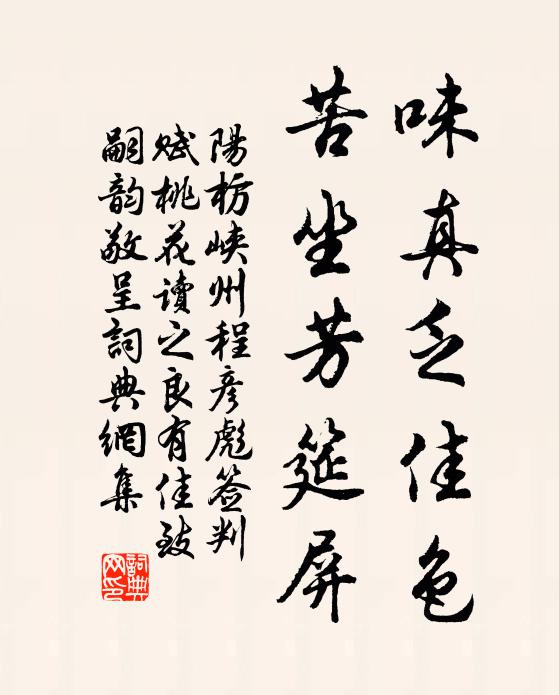 味真乏佳色
苦坐芳筵屏
陽枋峽州程彥彪签判
賦桃花讀之良有佳致
嗣韵敬呈詞典網集
詞典网印